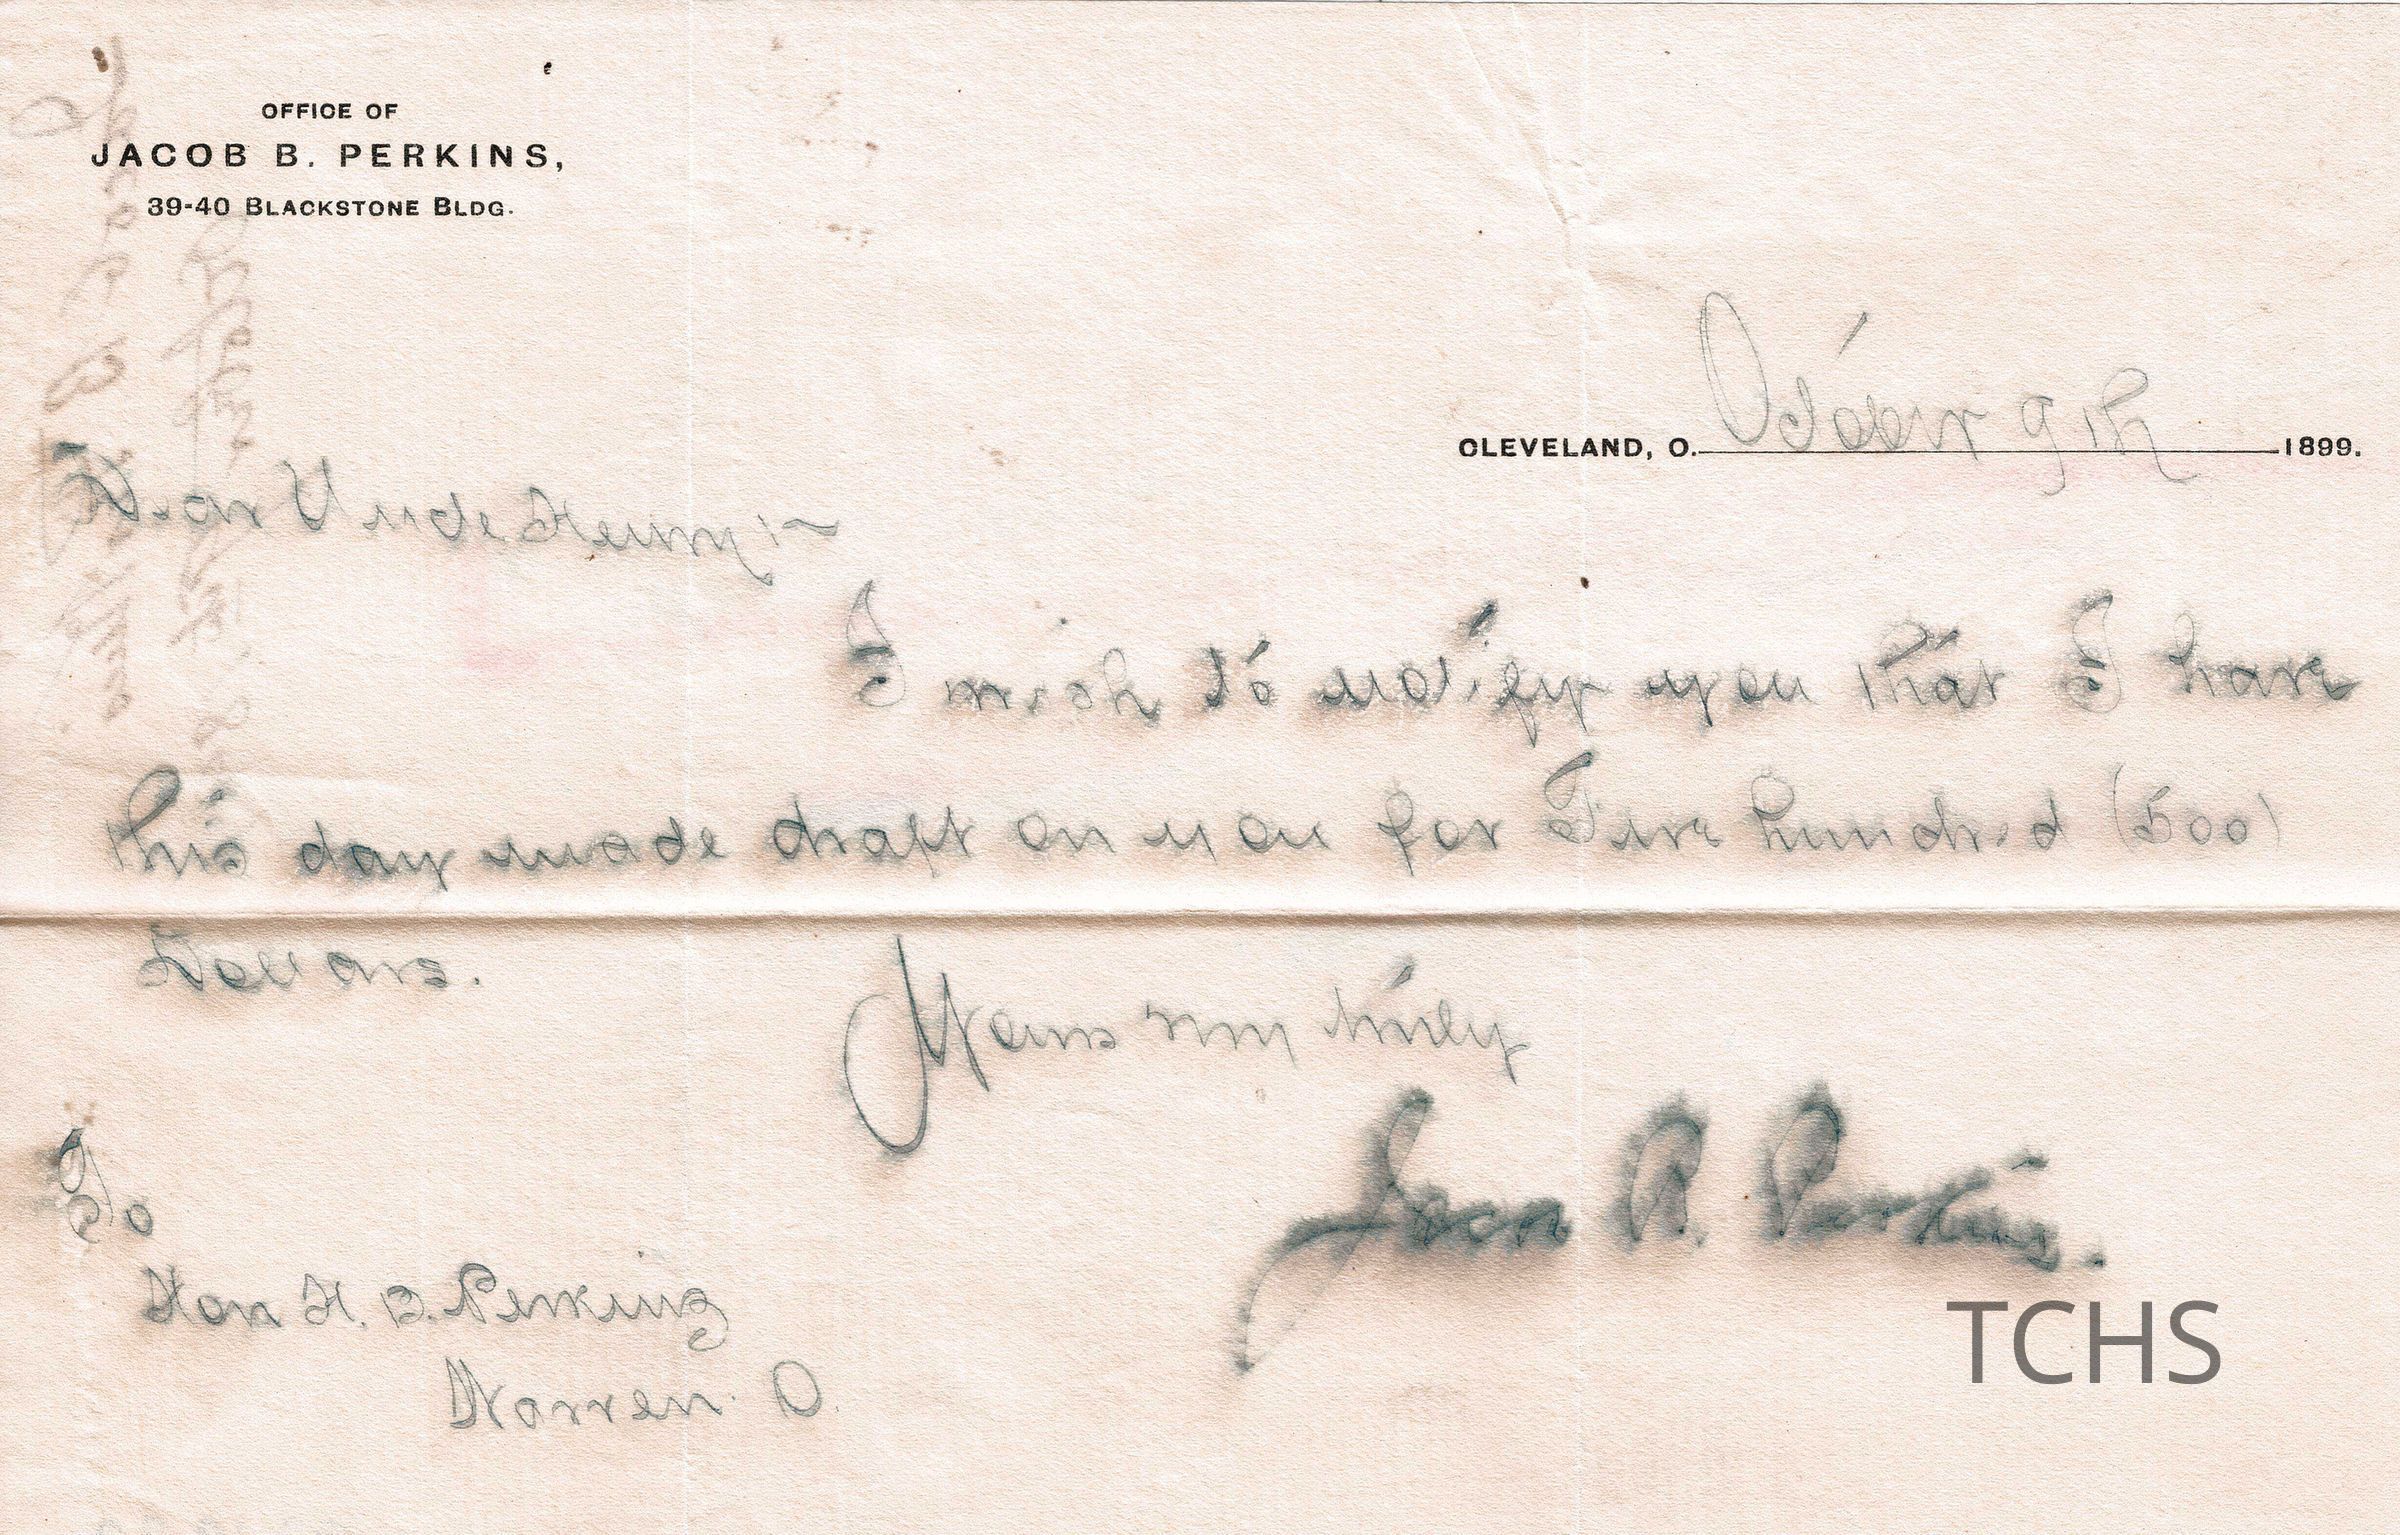 OFFICE OF
JACOB B. PERKINS,
39-40 BLACKSTONE BLDG.
CLEVELAND, O. October 9th 1899.
Dear Uncle Henry:~
I wish to notify you that I have
this day made draft on you for Five hundred (500)
Dollars.
Yours very truly
Jacob B. Perkins.
To
Hon H. B. Perkins
Warren. O.
TCHS